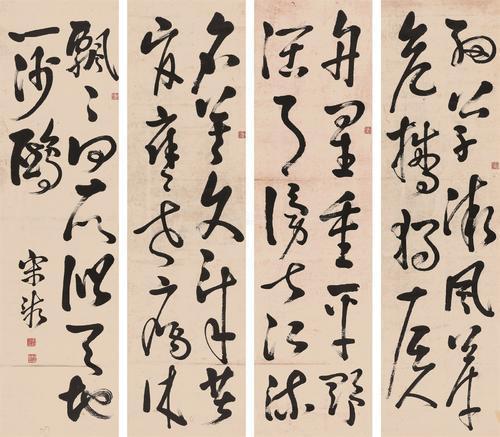 細草微風岸
危檣獨夜
舟星垂平野
闊月湧大江流
名豈文章著
官應老病休
飄〻何所似天地
一沙鷗
宋湘